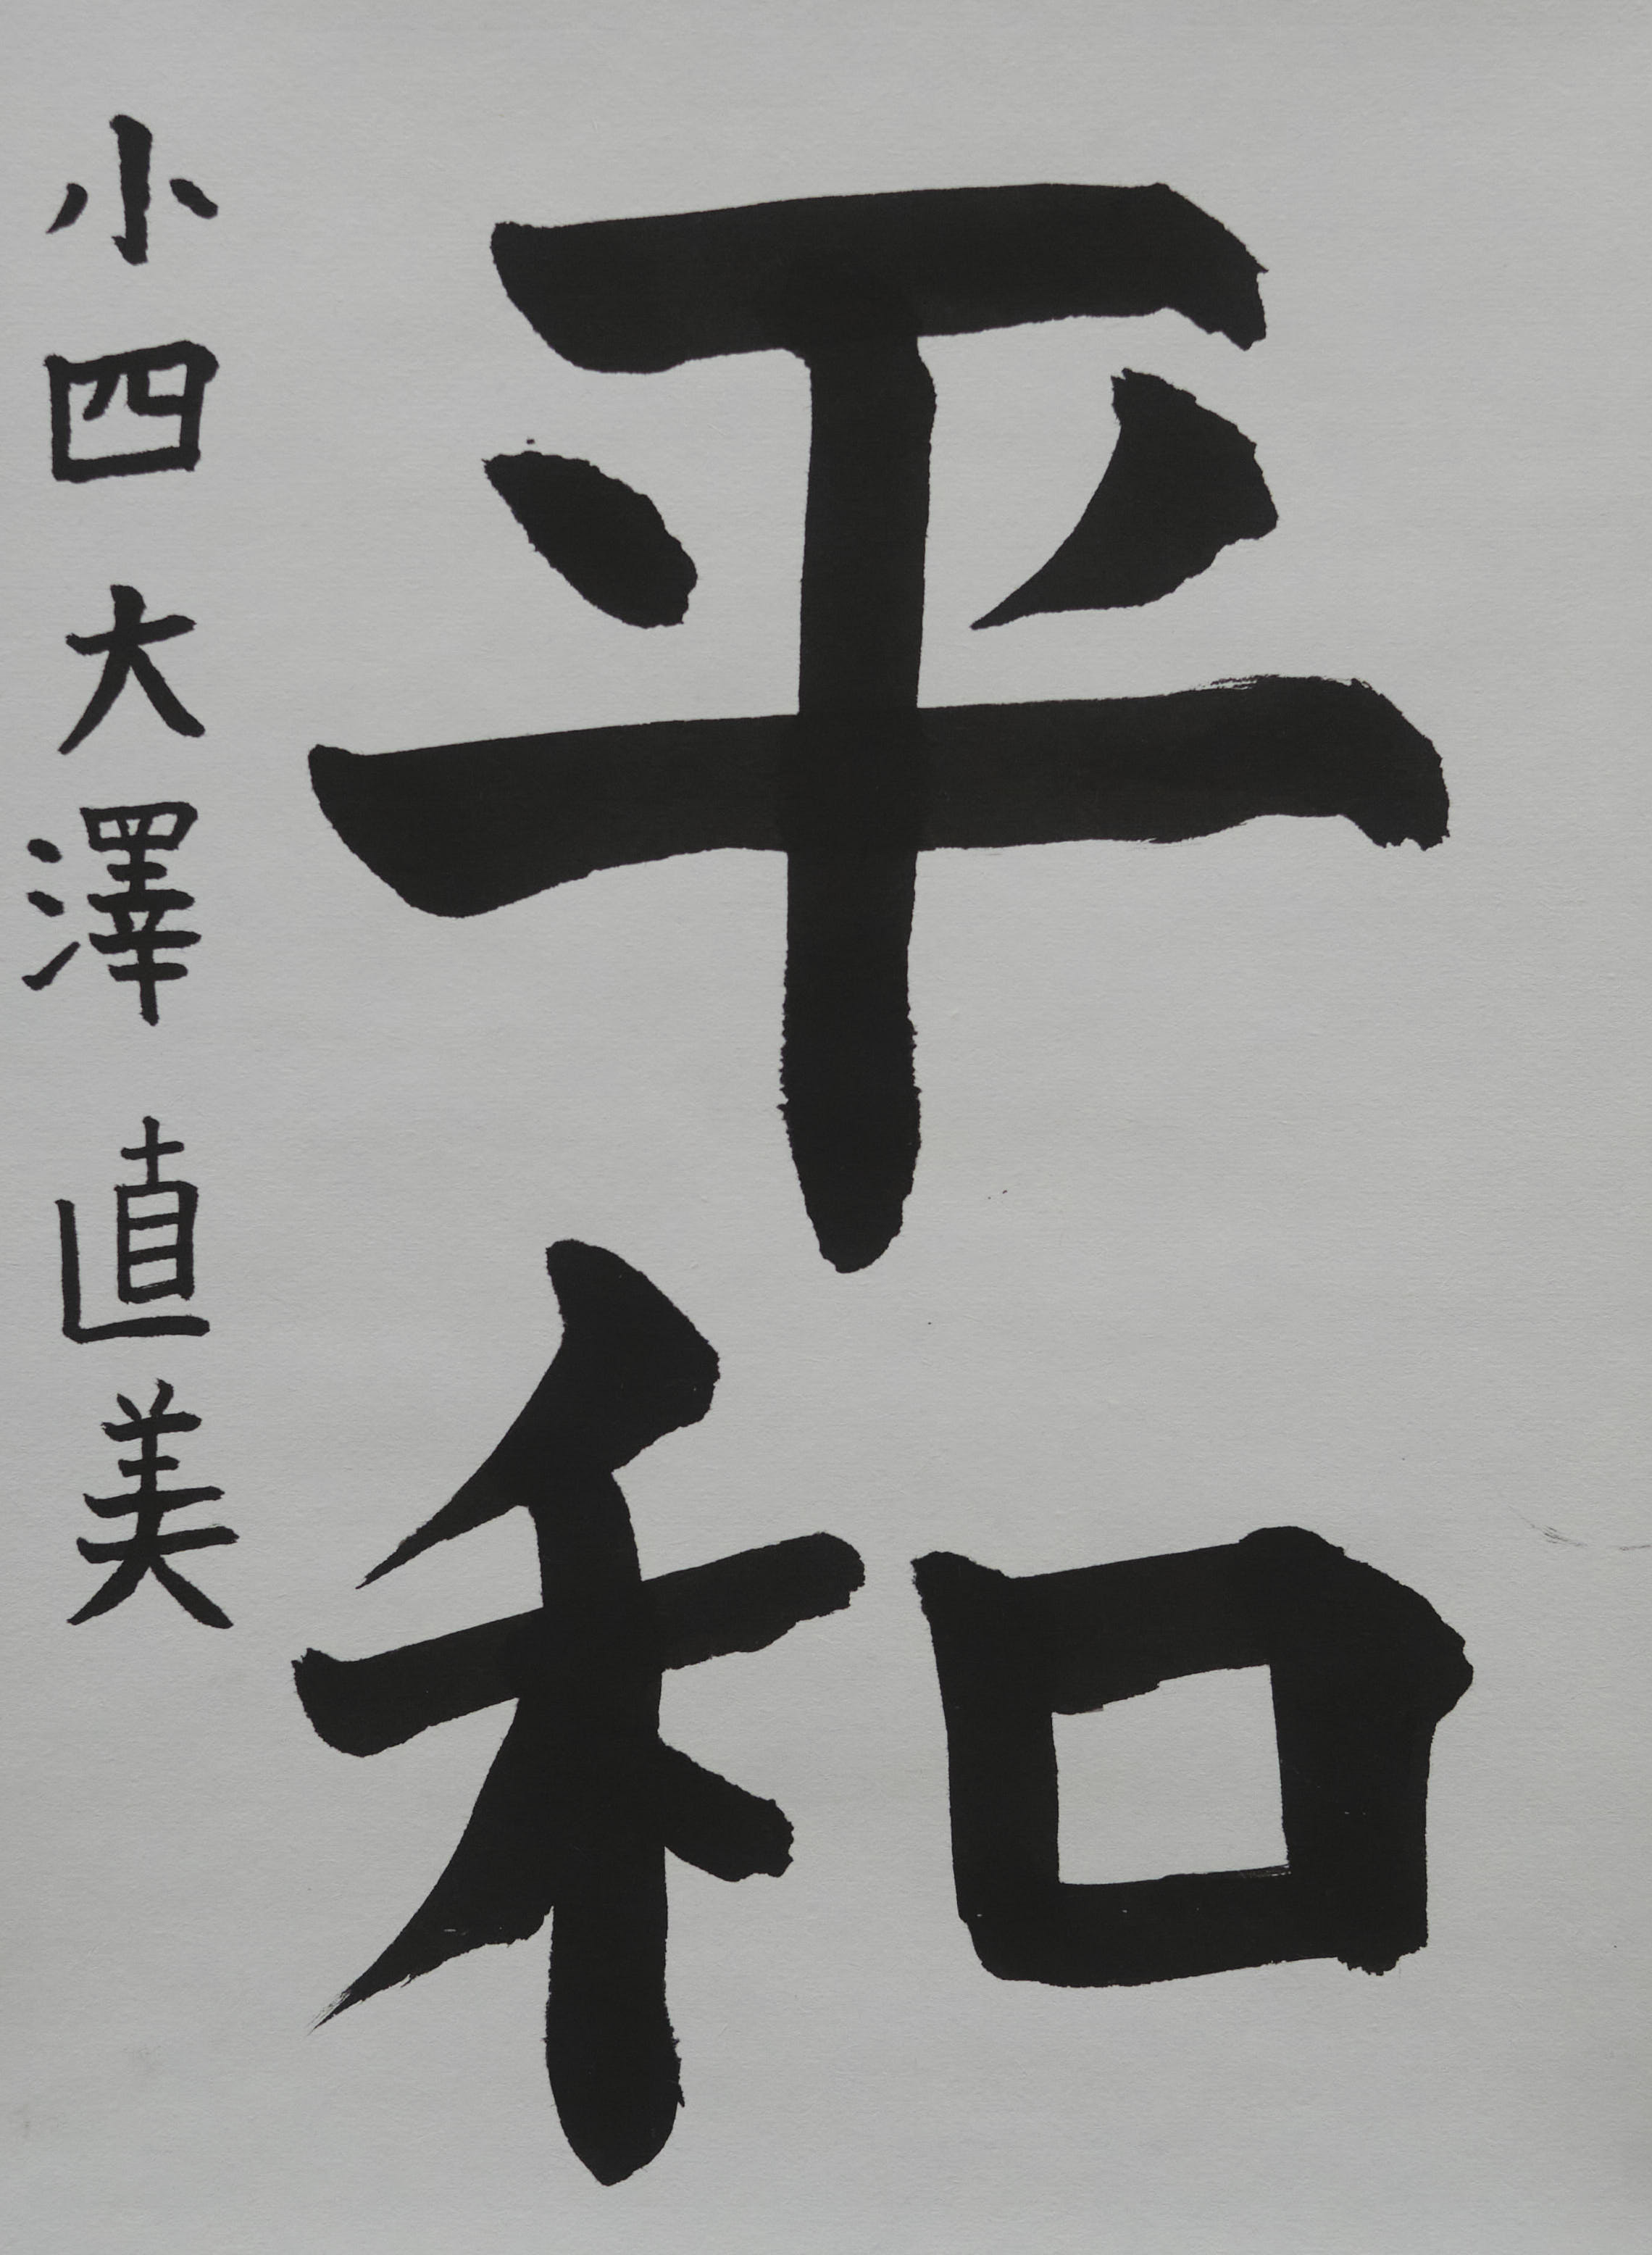 平和
小四 大澤 直美